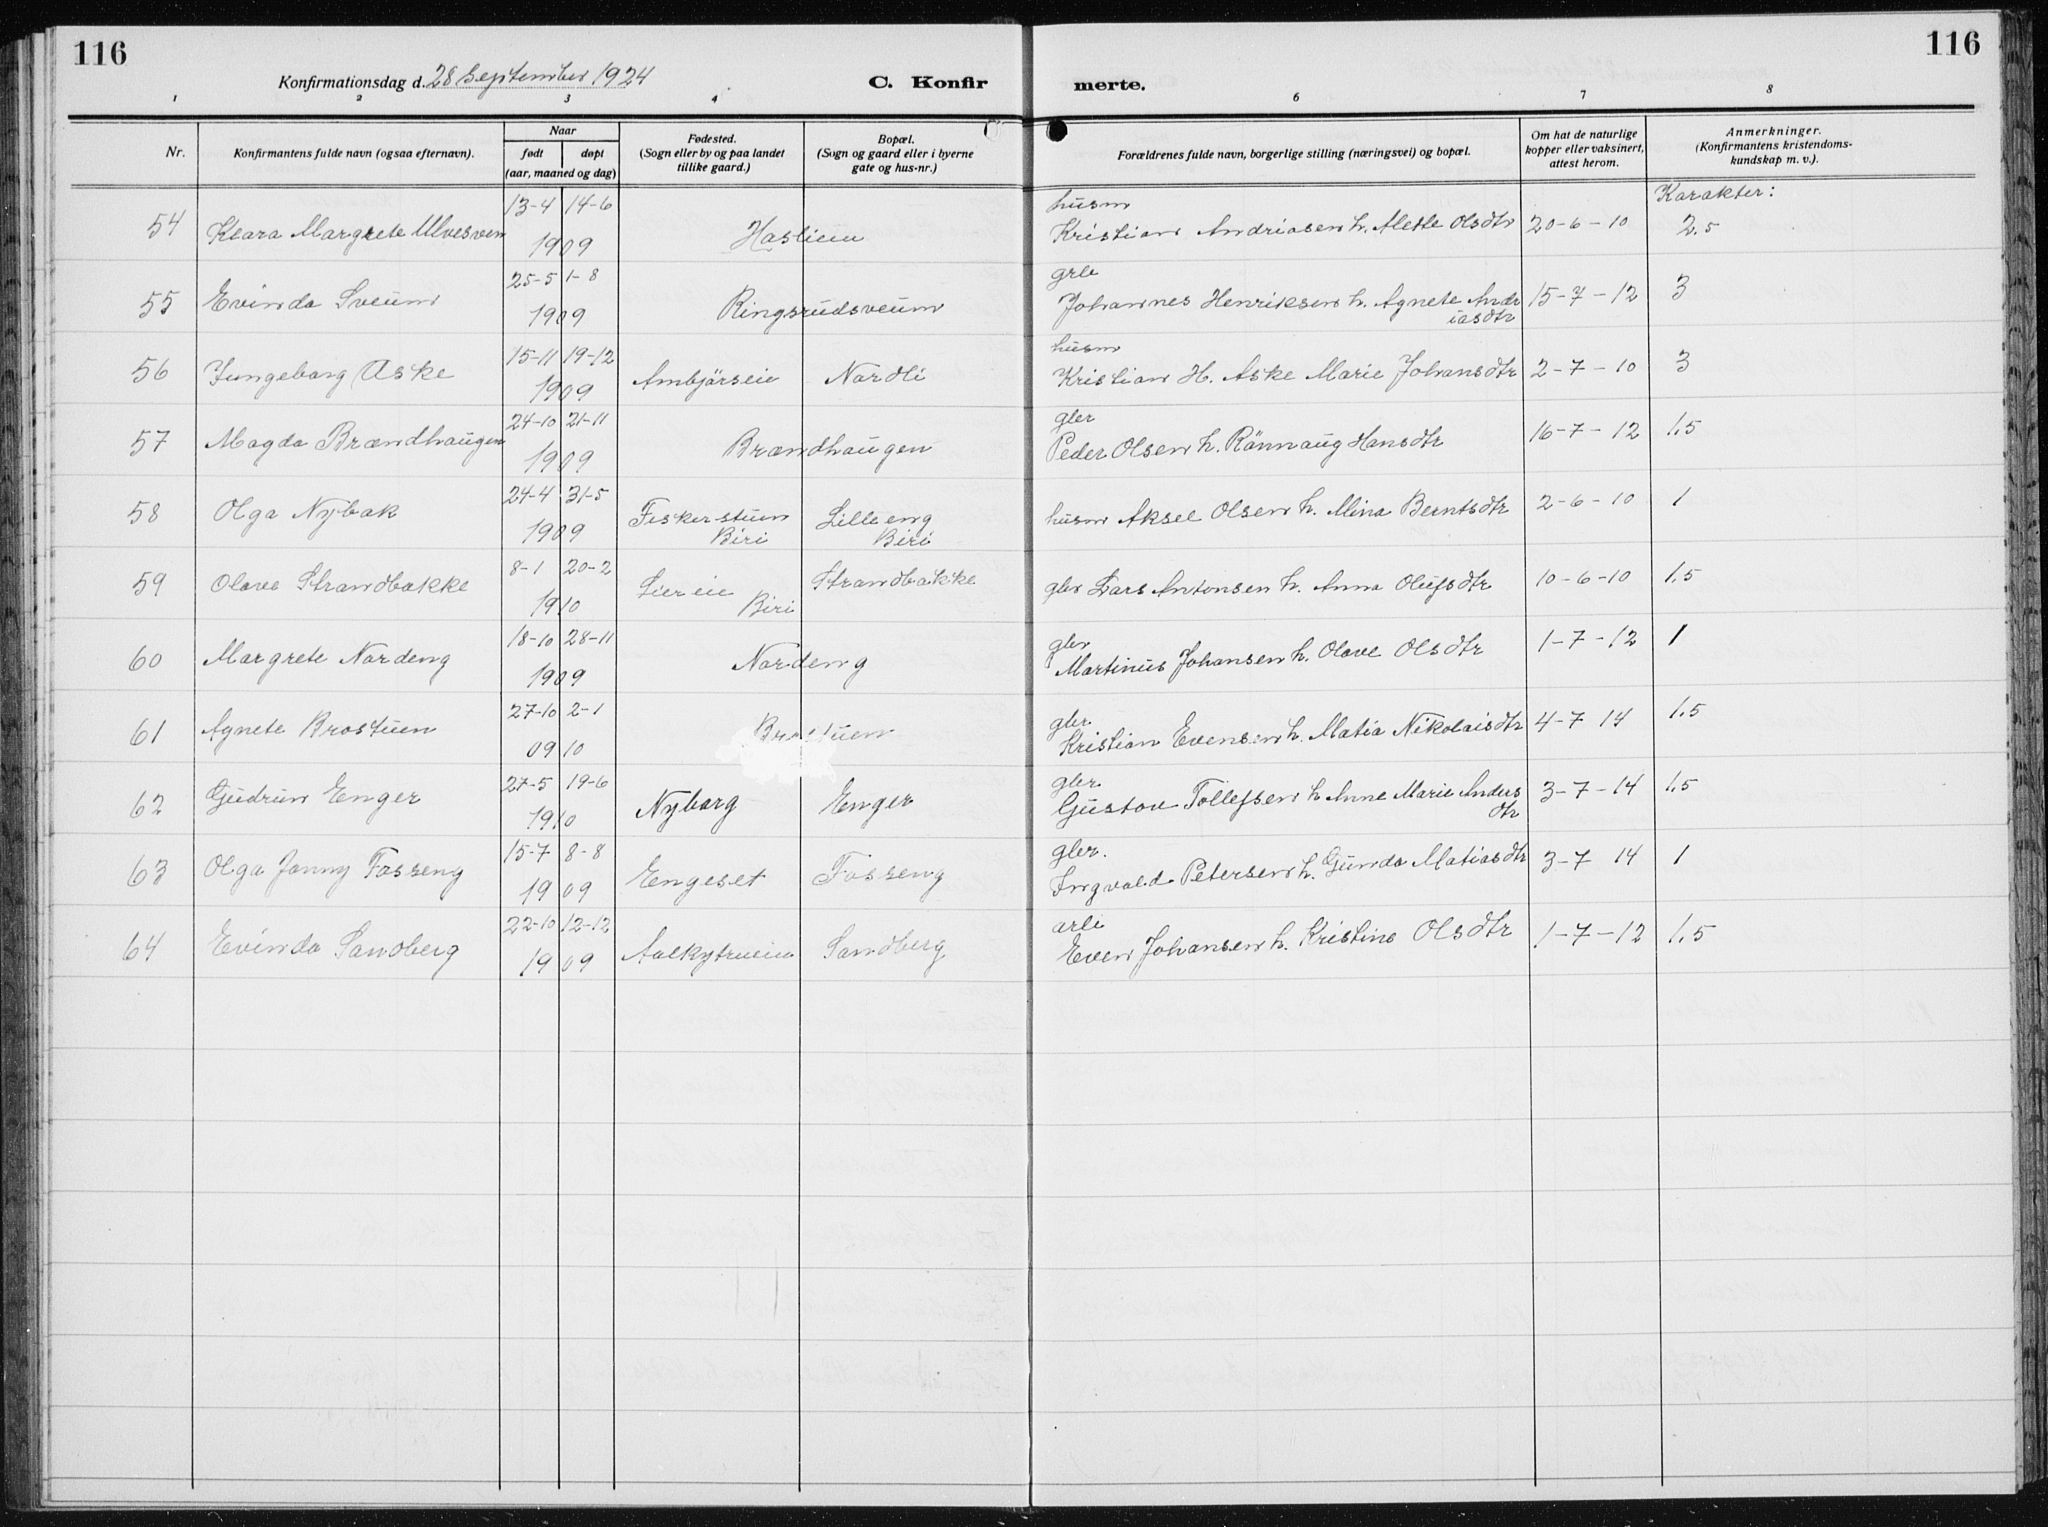 116
116
Konfirmationsdag d. 28 September 1924
C. Konfirmerte.
1 2 3 4 6 7 8
Nr.
Konfirmantens fulde navn (ogsaa efternavn).
Naar
født døpt
(aar, maaned og dag)
Fødested.
(Sogn eller by og paa landet
tillike gaard.)
Bopæl.
(Sogn og gaard eller i byerne
gate og hus-nr.)
Forældrenes fulde navn, borgerlige stilling (næringsvei) og bopæl.
Om hat de naturlige
kopper eller vaksinert,
attest herom.
Anmerkninger.
(Konfirmantens kristendoms-
kundskap m. v.).
13-4 14-6 husm Karakter:
54 Klara Margrete Ulvesven 1909 Haslien Kristian Andriasen h. Alette Olsdtr 20-6-10 2.5
25-5 1-8 grle
55 Evinda Sveum 1909 Ringsrudsveum Johannes Henriksen h. Agnete Andr 15-7-12 3
iasdtr
15-11 19-12 husm
56 Jungeborg Aske 1909 Ambjörseie Nordli Kristian H. Aske Marie Johansdtr 2-7-10 3
24-10 21-11 gler
57 Magda Brændhaugen 1909 Brændhaugen Peder Olsen h. Rönnaug Hansdtr 16-7-12 1.5
24-4 31-5
58 Olga Nybak 1909 Fiskerstuen Lilleeng husm Aksel Olsen h. Mina Berntsdtr 2-6-10 1
Biri Biri
8-1 20-2
59 Olave Strandbakke 1910 Liereie Strandbakke gler Lars Antonsen h. Anna Olufsdtr 10-6-10 1.5
Biri
18-10 28-11 gler
60 Margrete Nordeng 1909 Nordeng Martinus Johansen h. Olave Olsdtr 1-7-12 1
27-10 2-1 gler
61 Agnete Brostuen 09 10 Brostuen Kristian Evensen h. Matia Nikolaisdtr 4-7 14 1.5
27-5 19-6 gler
62 Gudrun Enger 1910 Nyborg Enger Gustav Tollefsen h Anne Marie Anders 3-7-14 1.5
dtr
15-7 8-8 gler.
63 Olga Jonny Fosseng 1909 Engeset Fosseng Ingvald Petersen h. Gunda Matiasdtr 3-7 14 1
22-10 12-12 arle
64 Evinda Sandberg 1909 Sandberg Even Johansen h. Kristine Olsdtr 1-7-12 1.5